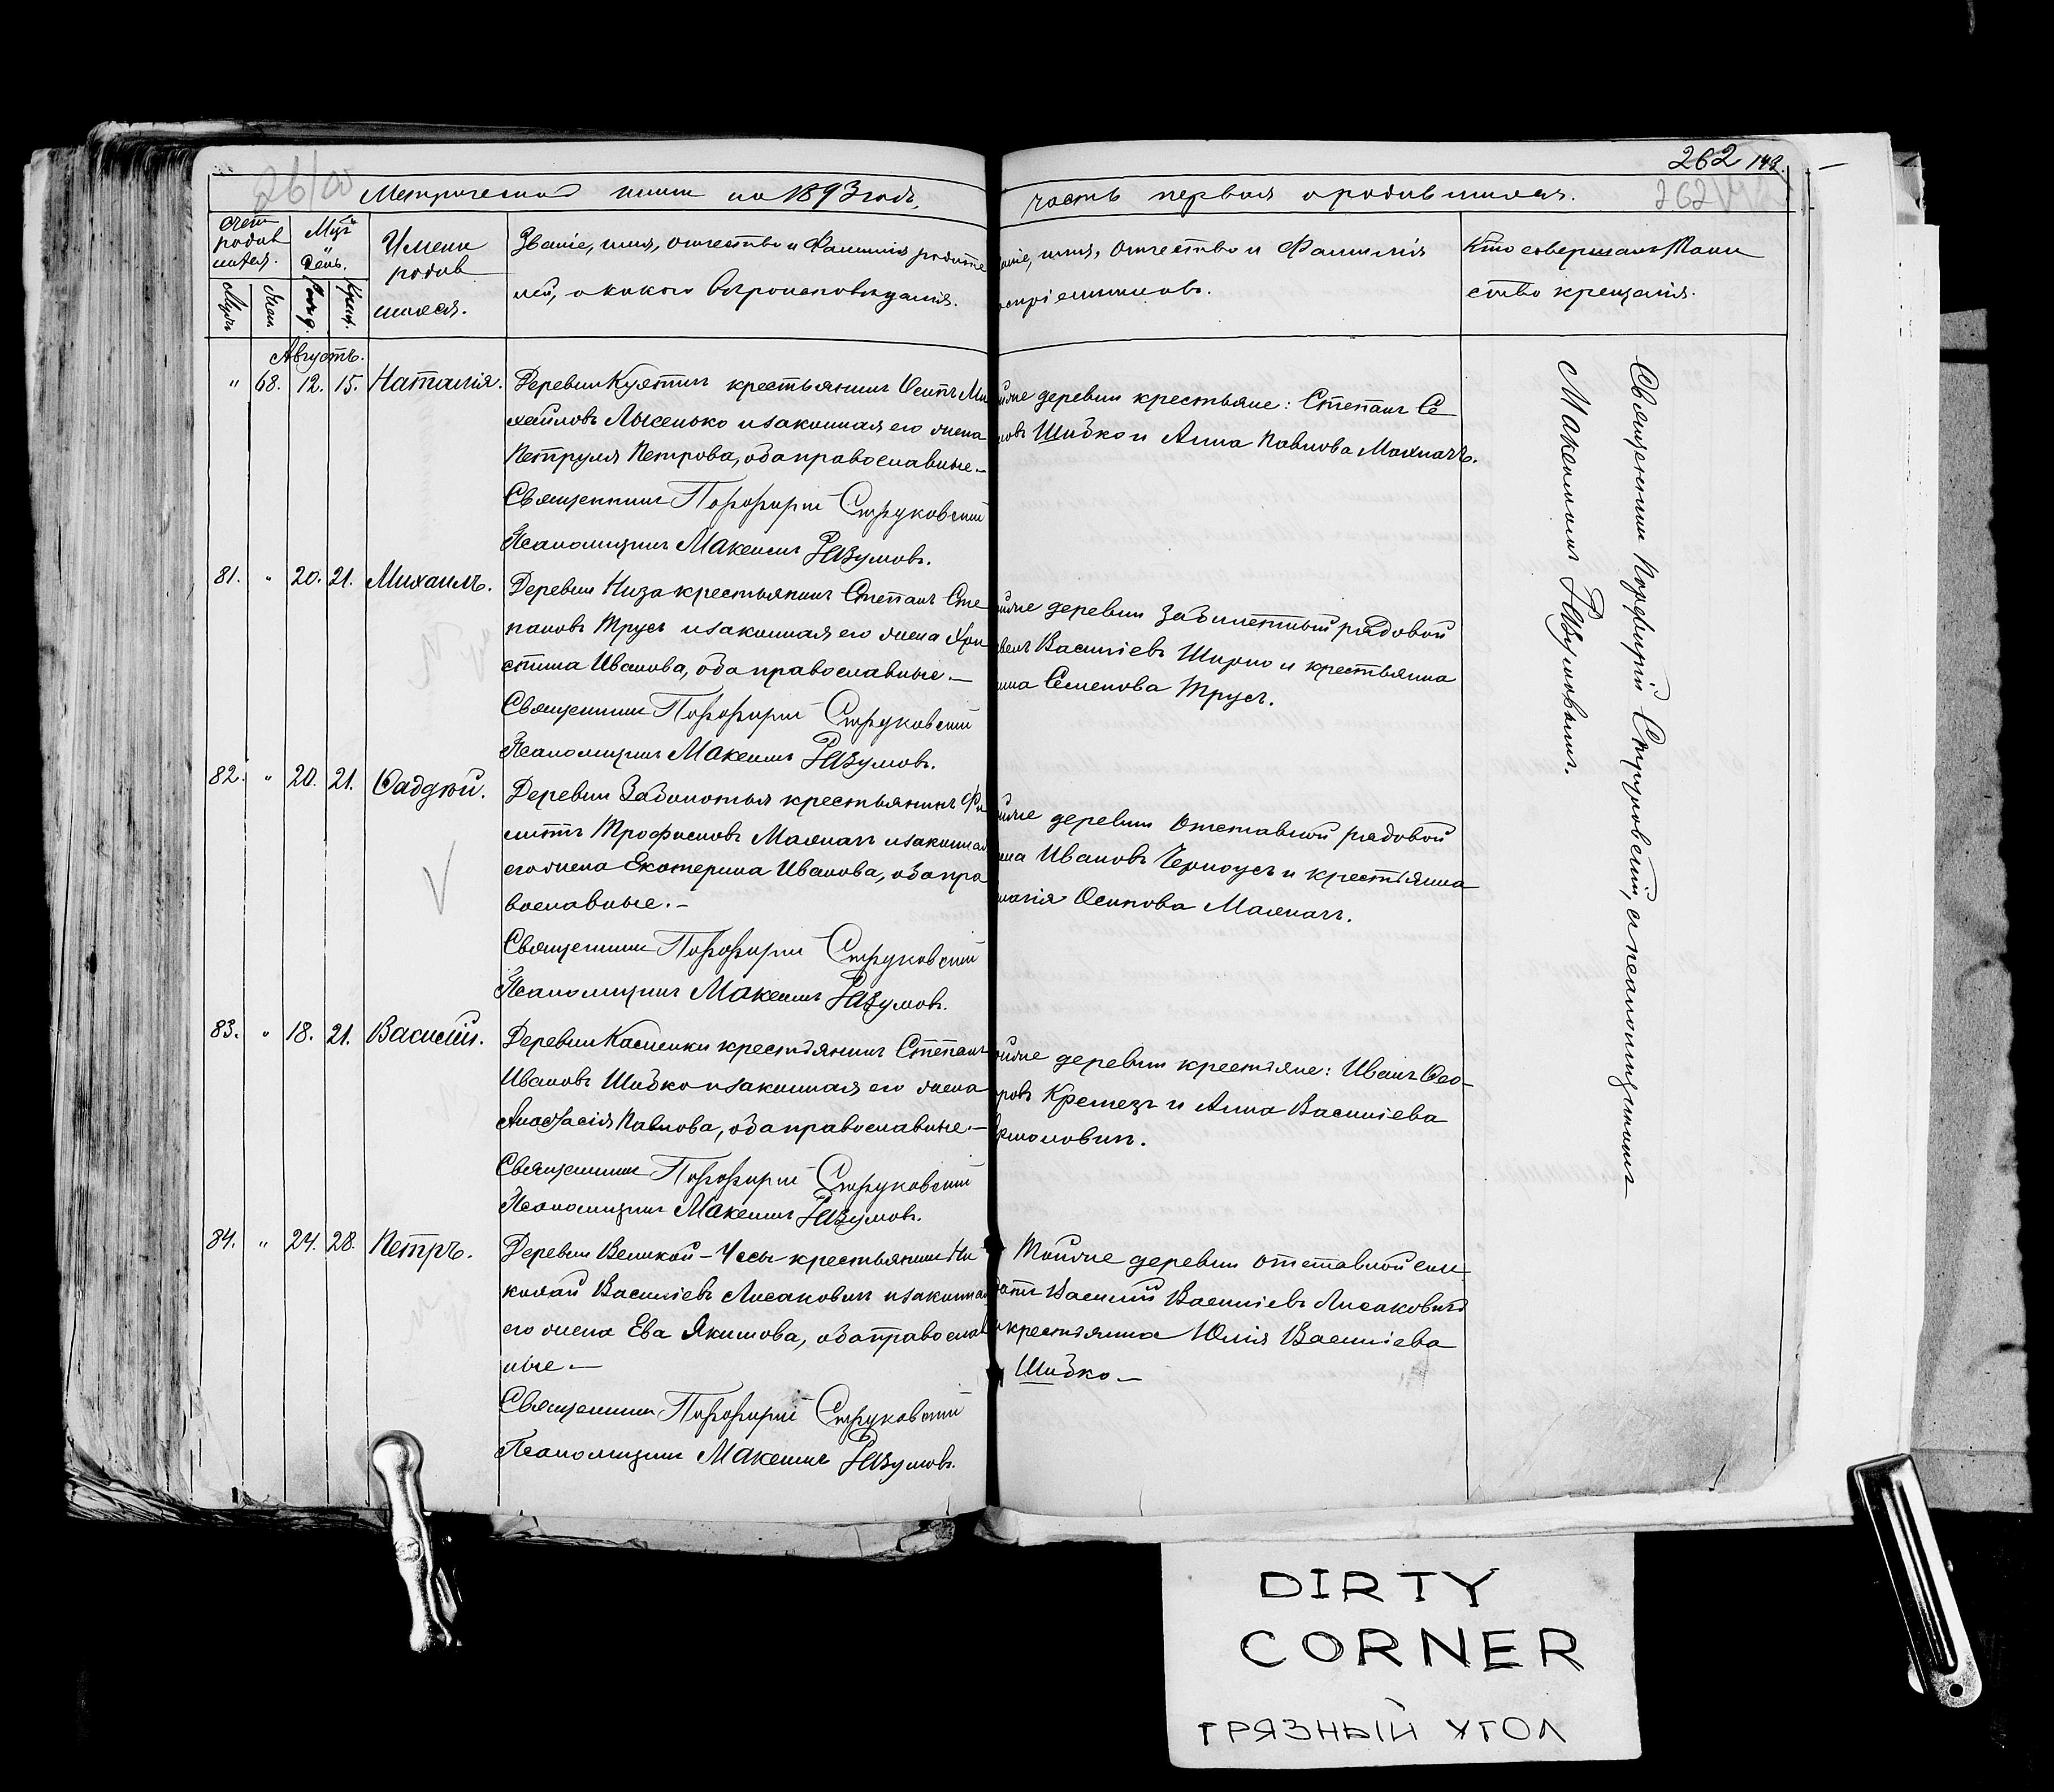 262 143.
Метрической книги на 1893 годъ,
часть первая о родившихся.
262
Счетъ родившихся.
Муж.
Жен.
День.
Рожд.
Крещ.
Имена
родив
шихся.
Званіе, имя, отчество и фамилія родите
лей, и какого вѣроисповѣданія.
имя, отчество и фамилія
воспріемниковъ.
Кто совершалъ Таин
ство крещенія.
Августъ.
" 68. 12. 15. Наталія.
Деревни Куятичъ крестьянинъ Осипъ Ми
хайловъ Лысенько и законная его жена
Петруля Петрова, оба православные.—
Священникъ Порфирій Струковскій
Псаломщикъ Максимъ Разумовъ.
деревни крестьяне: Степанъ Се
новъ Шибко и Анна Павлова Махначъ.
81. " 20. 21. Михаилъ.
Деревни Низа крестьянинъ Степанъ Сте
пановъ Трусъ и законная его жена Хри
стина Иванова, оба православные.—
Священникъ Порфирій Струковскій
Псаломщикъ Максимъ Разумовъ.
деревни Забилетный рядовой
Васильевъ Ширко и крестьянка
Семенова Трусъ.
82. " 20. 21. Фаддей.
Деревни Заболотья крестьянинъ Фи
липпъ Трофимовъ Махначъ и законная
его жена Екатерина Иванова, оба пра
вославные.—
Священникъ Порфирій Струковскій
Псаломщикъ Максимъ Разумовъ.
деревни отставной рядовой
Ивановъ Черноусъ и крестьянка
Осипова Махначъ.
83. " 18. 21. Василій.
Деревни Касценки крестьянинъ Степанъ
Ивановъ Шибко и законная его жена
Анастасія Павлова, оба православные.—
Священникъ Порфирій Струковскій
Псаломщикъ Максимъ Разумовъ.
деревни крестьяне: Иванъ Ѳео-
ровъ Кремезъ и Анна Васильева
рмоловичъ.
84. " 24. 28. Петръ.
Деревни Великой-Чесы крестьянинъ Ни
колай Васильевъ Лисаковичъ и законная
его жена Ева Якимова, оба православ
ные.—
Священникъ Порфирій Струковскій
Псаломщикъ Максимъ Разумовъ.
Тойже деревни отставной сол
датъ Василій Васильевъ Лисаковичъ
и крестьянка Юлія Васильева
Шибко.—
Священникъ Порфирій Струковскій, съ псаломщикомъ
Максимомъ Разумовымъ.
DIRTY
CORNER
ГРЯЗНЫЙ УГОЛ